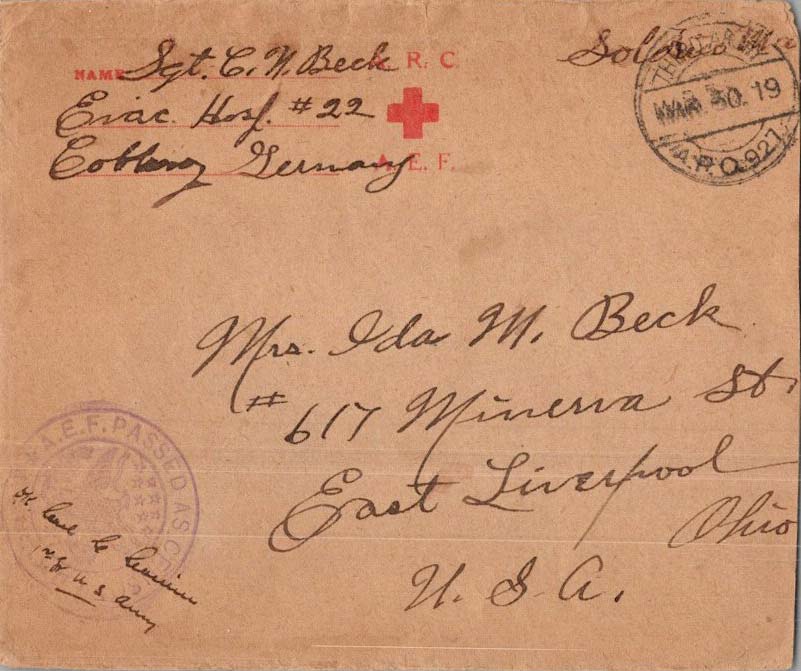 NAME Sgt. C. N. Beck A. R. C.
Evac. Hosp. #22
Coblenz Germany A. E. F.
Soldiers Mail
MAR 30. 19
A.P.O. 927
Mrs. Ida M. Beck
# 617 Minerva St.
East Liverpool
Ohio
U. S. A.
A.E.F. PASSED AS
OK Carl
1st Lt U S Army